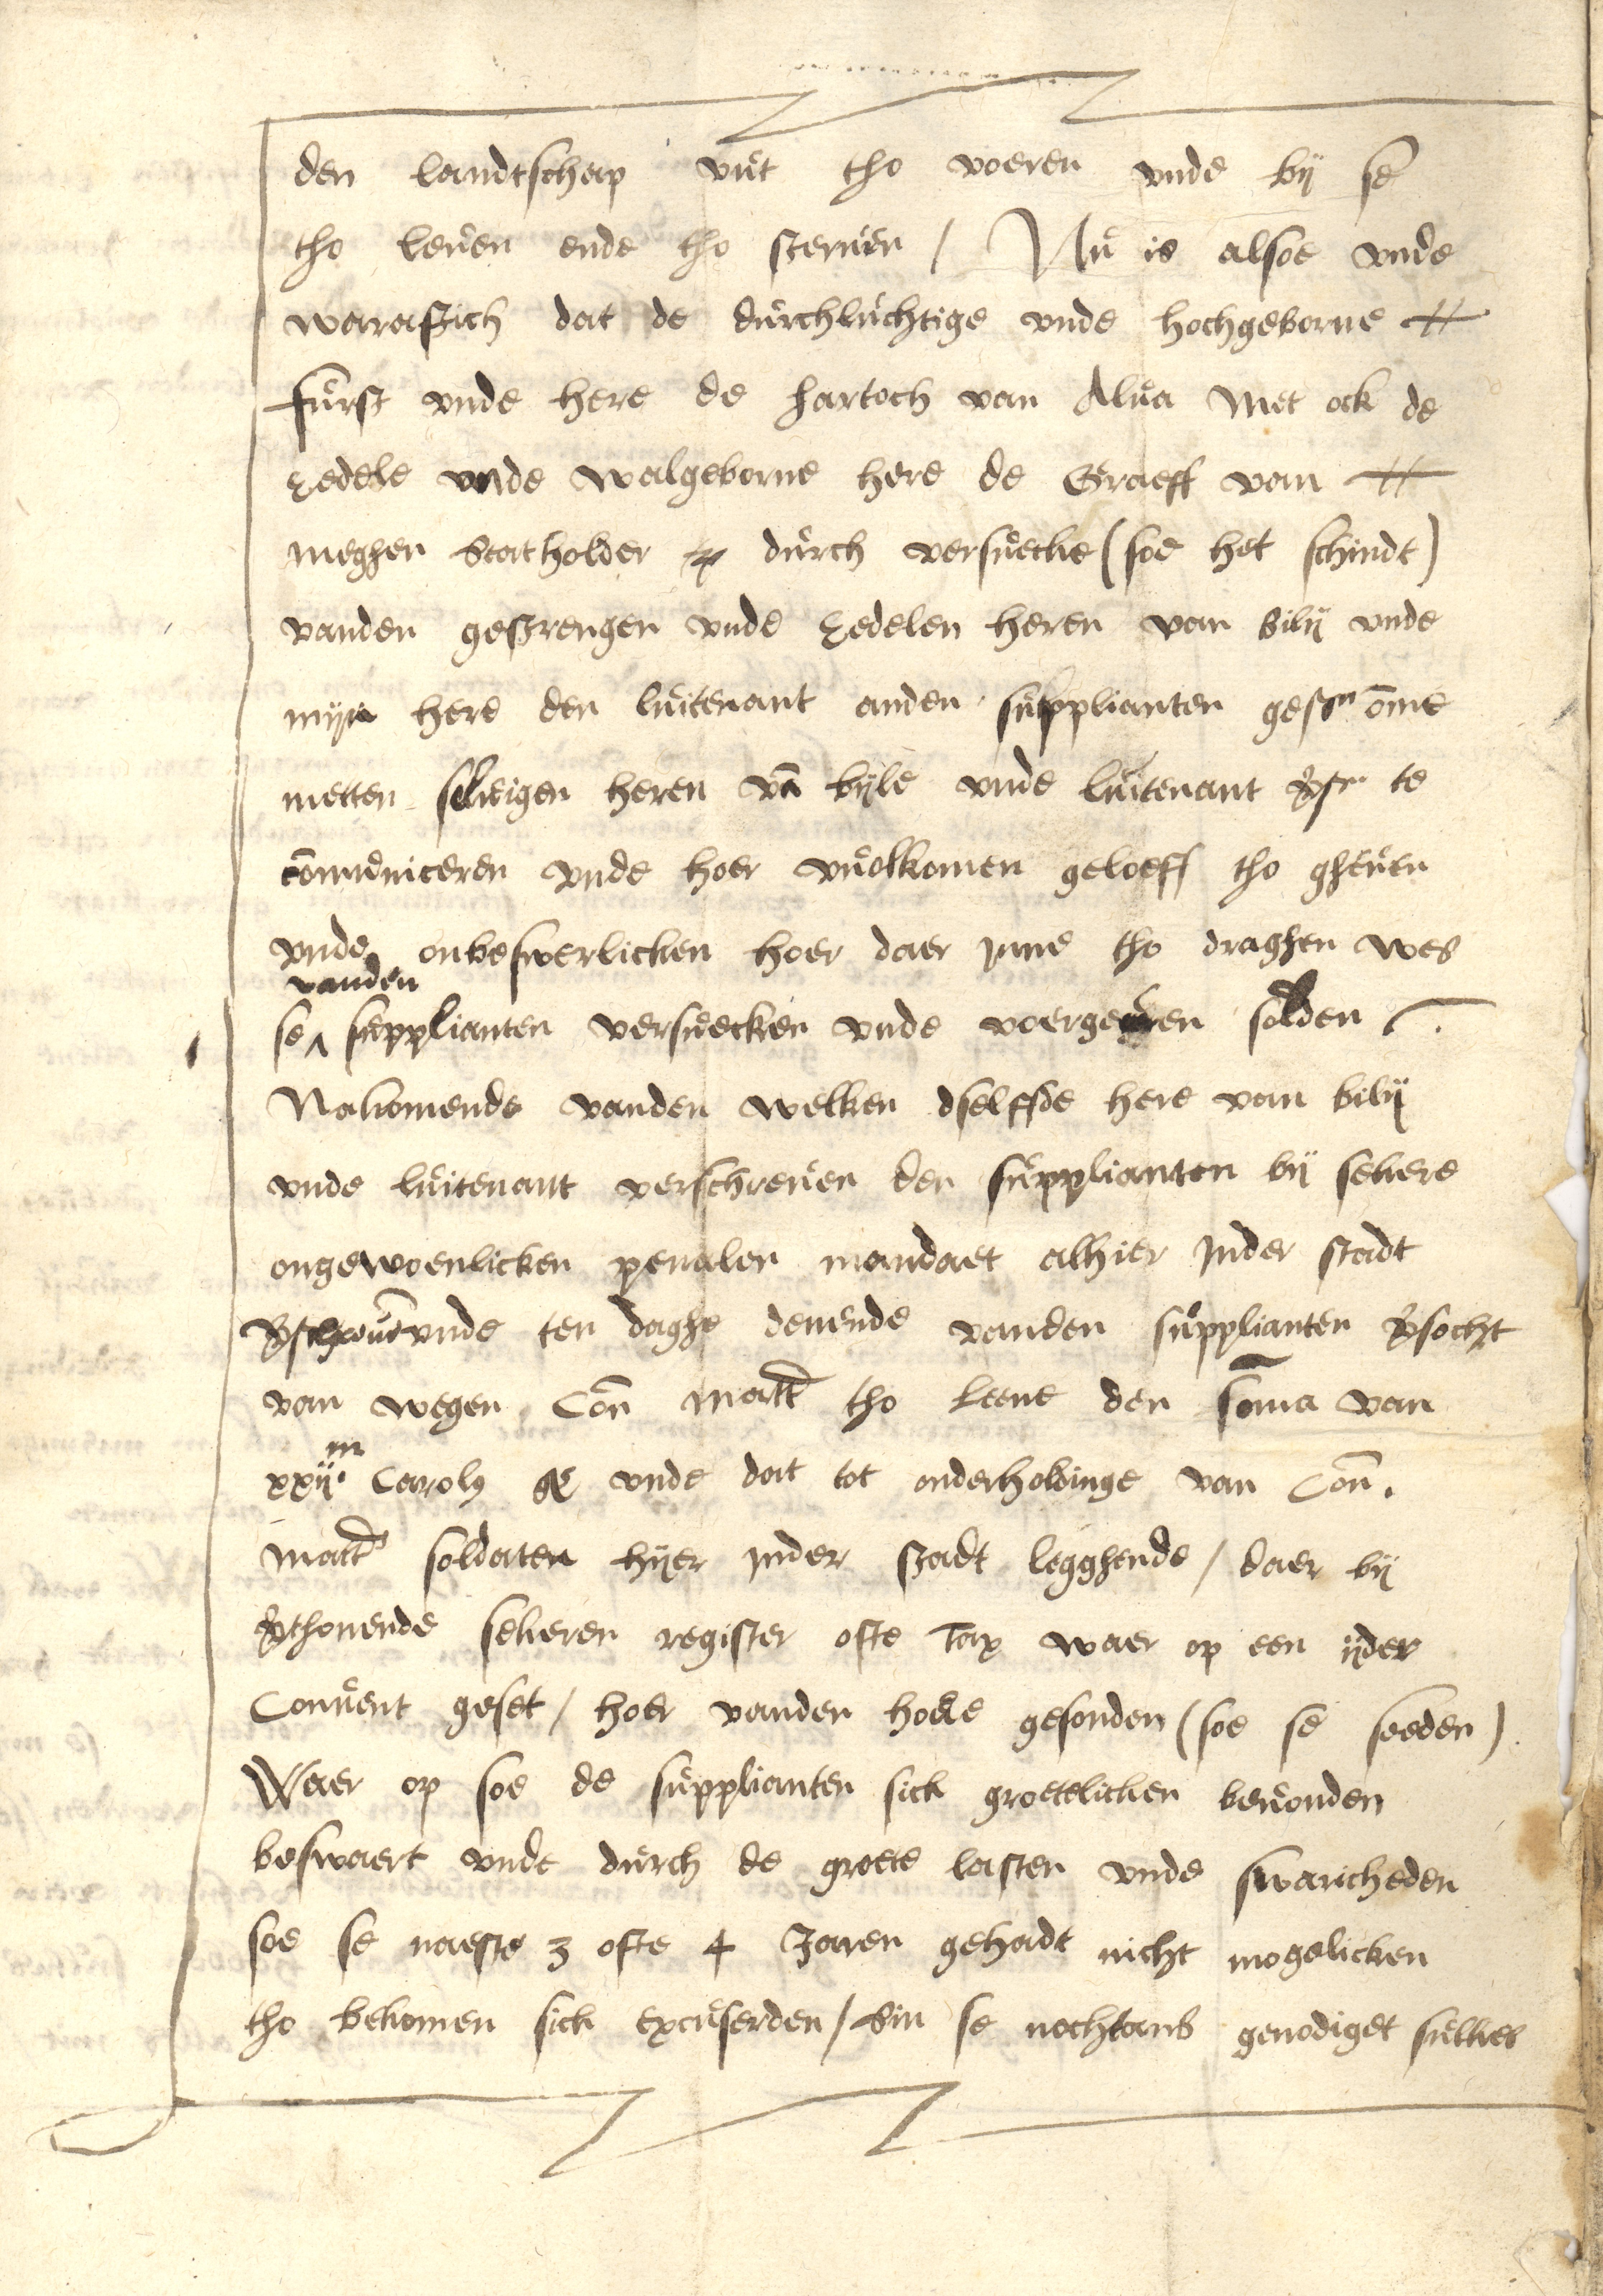 den landtschap vuit tho voeren vnde bij se
tho leuen ende tho steruen / Nu is alsoe vnde
waraftich dat de durchluchtige vnde hochgeborne
furst vnde here de hartoch van Alua Met ock de
Eedele vnde walgeborne here de Graeff van
meghen StathoLder durch versuecke (soe het schindt)
vanden gestrengen vnde Eedelen heren van bilij vnde
mijn here den luitenant anden supplianten gess~n ome
metten seluigen heren va~ bijle vnde luitenant te
co~municeren vnde hoer vuolkomen geloeff tho gheuen
vnde onbeswerlicken hoer daer jnne tho draghen wes
vanden
se ^ supplianten versuecken vnde voergeuen solden
Nakomende vanden welken dselffde here van bilij
vnde luitenant verschreuen den supplianten bij sekere
ongewoenlicken penalen mandaet alhier Jnder stadt
vnde ten daghe denende vanden supplianten v~socht
van wegen Con~ Matt~ tho leene den so~ma van
xxij m Carolg g~ vnde dat tot onderholdinge van Con~.
Matt~ soldaten hijer Jnder stadt legghende / daer bij
v~thonende sekeren register ofte Tax waer op een ijder
Conuent geset / hoer vanden houe gesonden (soe se seeden)
Waer op soe de supplianten sick groetelicken beuonden
beswaert vnde durch de groete lasten vnde swaricheden
soe se naeste 3 ofte 4 Jaren gehadt nicht mogelicken
tho bekomen sick excuserden / Sin se nochtans genodiget sulkes